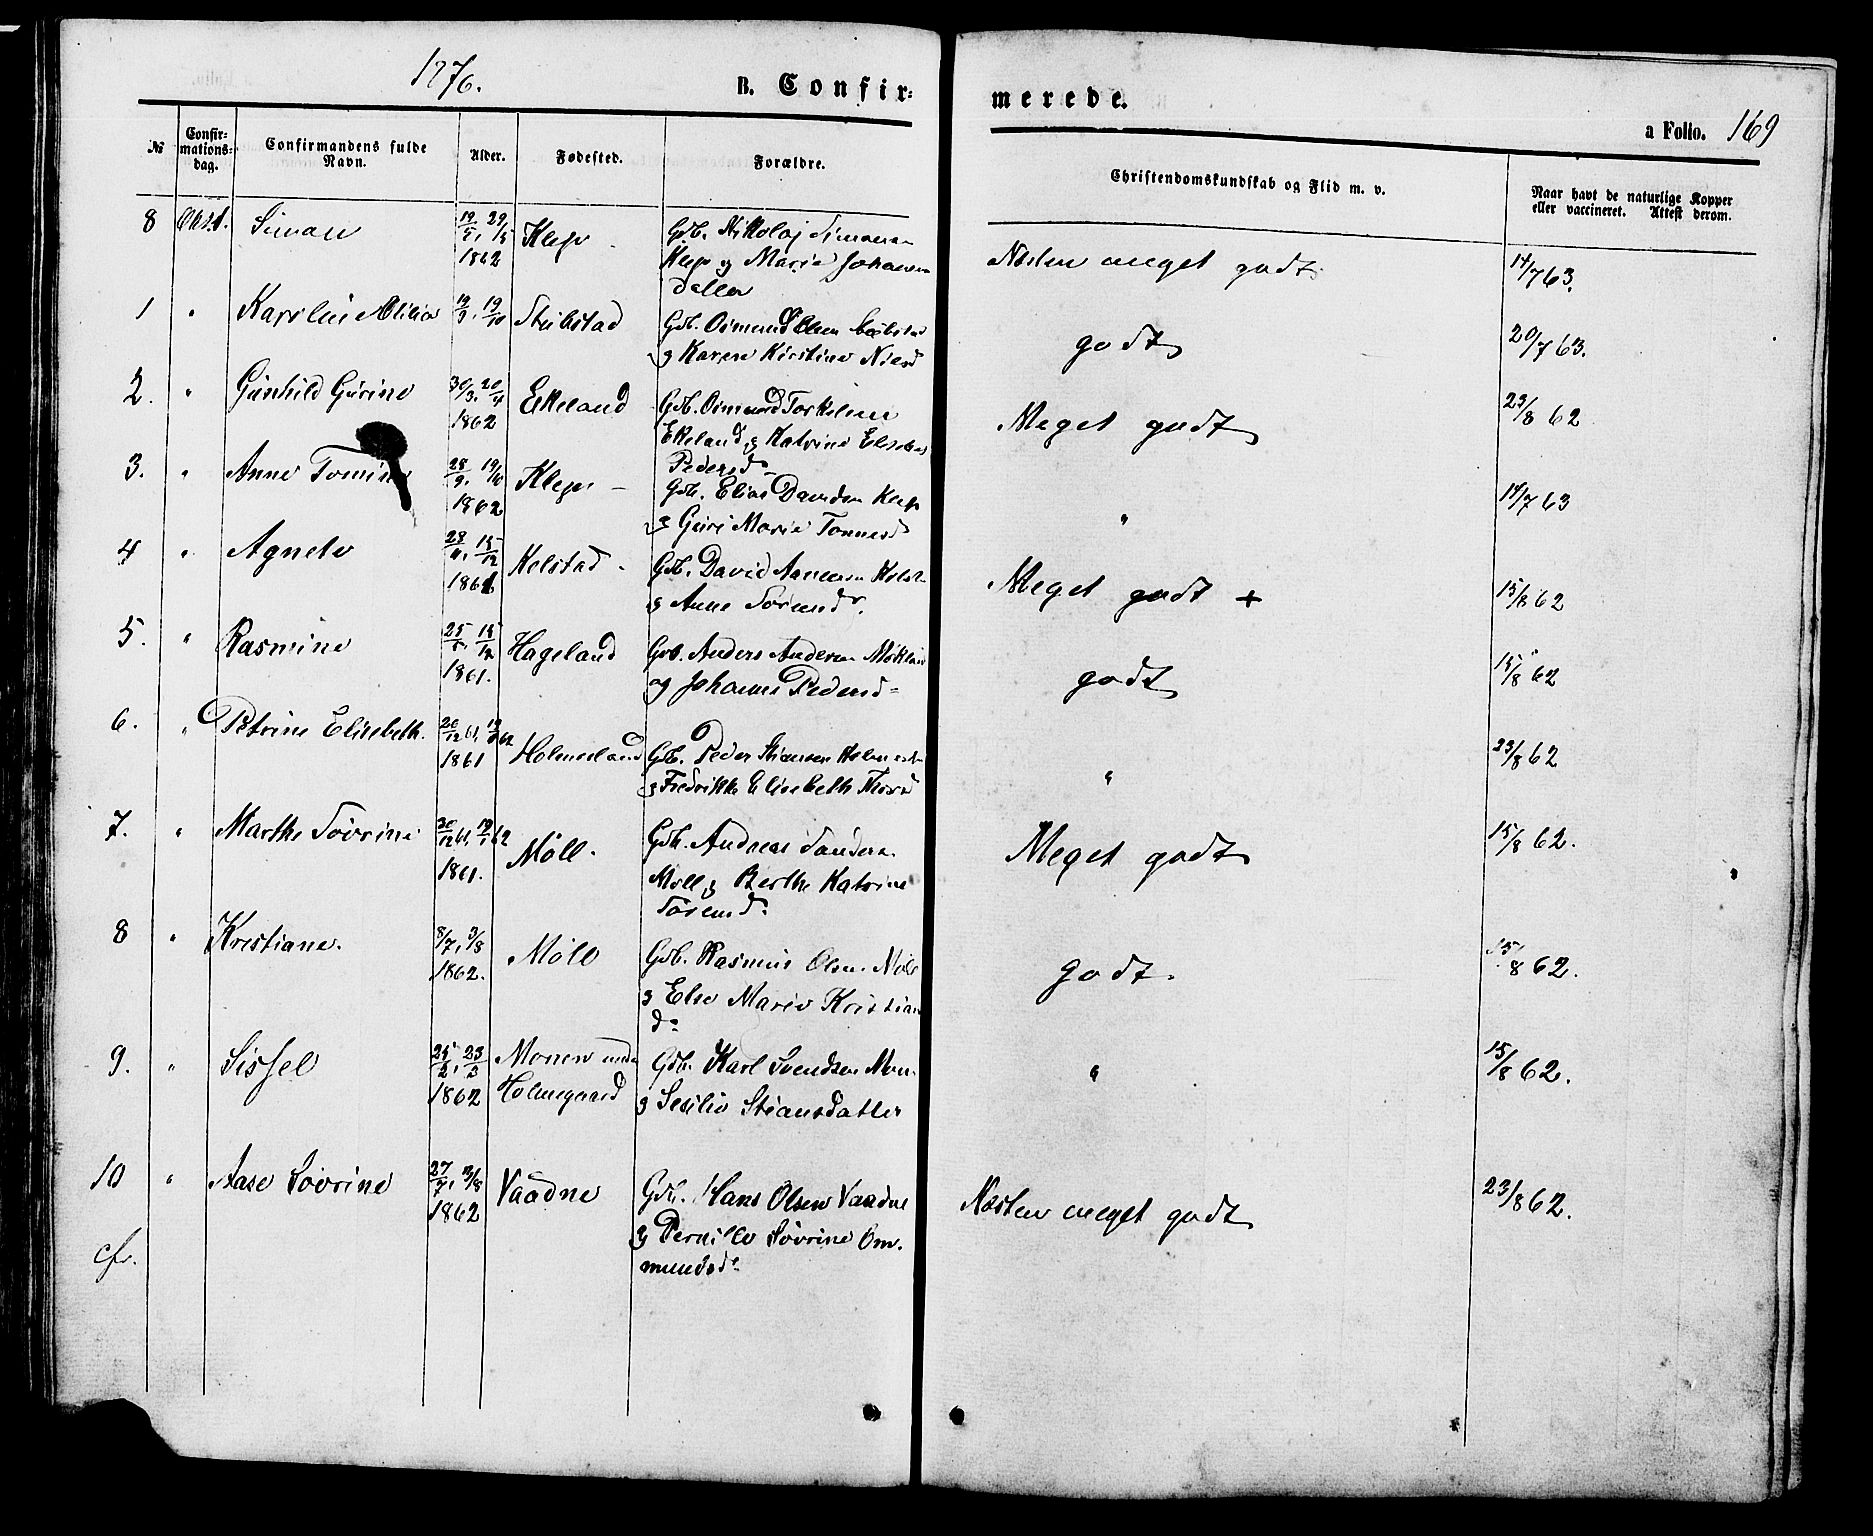 1876.
B. Confir=
merede.
a Folio. 169
№
Confir=
mations=
dag.
Confirmandens fulde
Navn.
Alder.
Fødested.
Forældre.
Christendomskundskab og Flid m. v.
Naar havt de naturlige Kopper
eller vaccineret. Attest derom.
8 Simon 1862 Klep Gdb. Nikolaj Simonsen
Klep og Marie Johannes
datter
Næsten meget godt 14/7 63.
1 " Stubstad Gdb. Osmund Olsen
og Karen Kirstine Nielsd
godt 20/7 63.
2. " Gunhild Gurine 30/3, 20/4 1862 Ekeland Gdb. Osmund Torkelsen
Ekeland og Katrine
Pedersd
Meget godt 23/8 62
3. " Anne 28/9, 19/10 1862 Klep Gdb. Elias Davidsen Klep
og Guri Marie Tønnesd
" 14/7 63
4 " Agnete 1861 Kelstad Gdb. David
og Anne Sørensd.
Meget godt + 15/8 62
5. " Rasmine 1861. Hageland Gdb. Anders Andersen
og Johanne Pedersd
godt 15/8 62
6. " Petrine Elisebeth. 1861 Holmesland Gdb. Peder Stiansen
og Fredrikke Elisebeth
" 23/8 62
7. " Marthe Sövrine 30/12 61, 1861. Möll. Gdb. Andreas
Möll og Berthe Katrine
Sörensd.
Meget godt 15/8 62.
8 " Kristiane. 8/7, 3/8 1862. Möll Gdb. Rasmus Olsen Möll
og Else Marie Kristians
d.
godt. 15/8 62.
9. " Sissel 25/2, 23/3 1862 Monen under
Holmegaard
Gdb. Karl Svendsen
og Sesilie Stiansdatter
" 15/8 62.
10 " Aase Sövrine 27/7, 3/8 1862 Vaadne Gdb. Hans Olsen Vaadne
og Pernille Sövrine Om-
mundsd.
Næsten meget godt 23/8 62.
cfr.